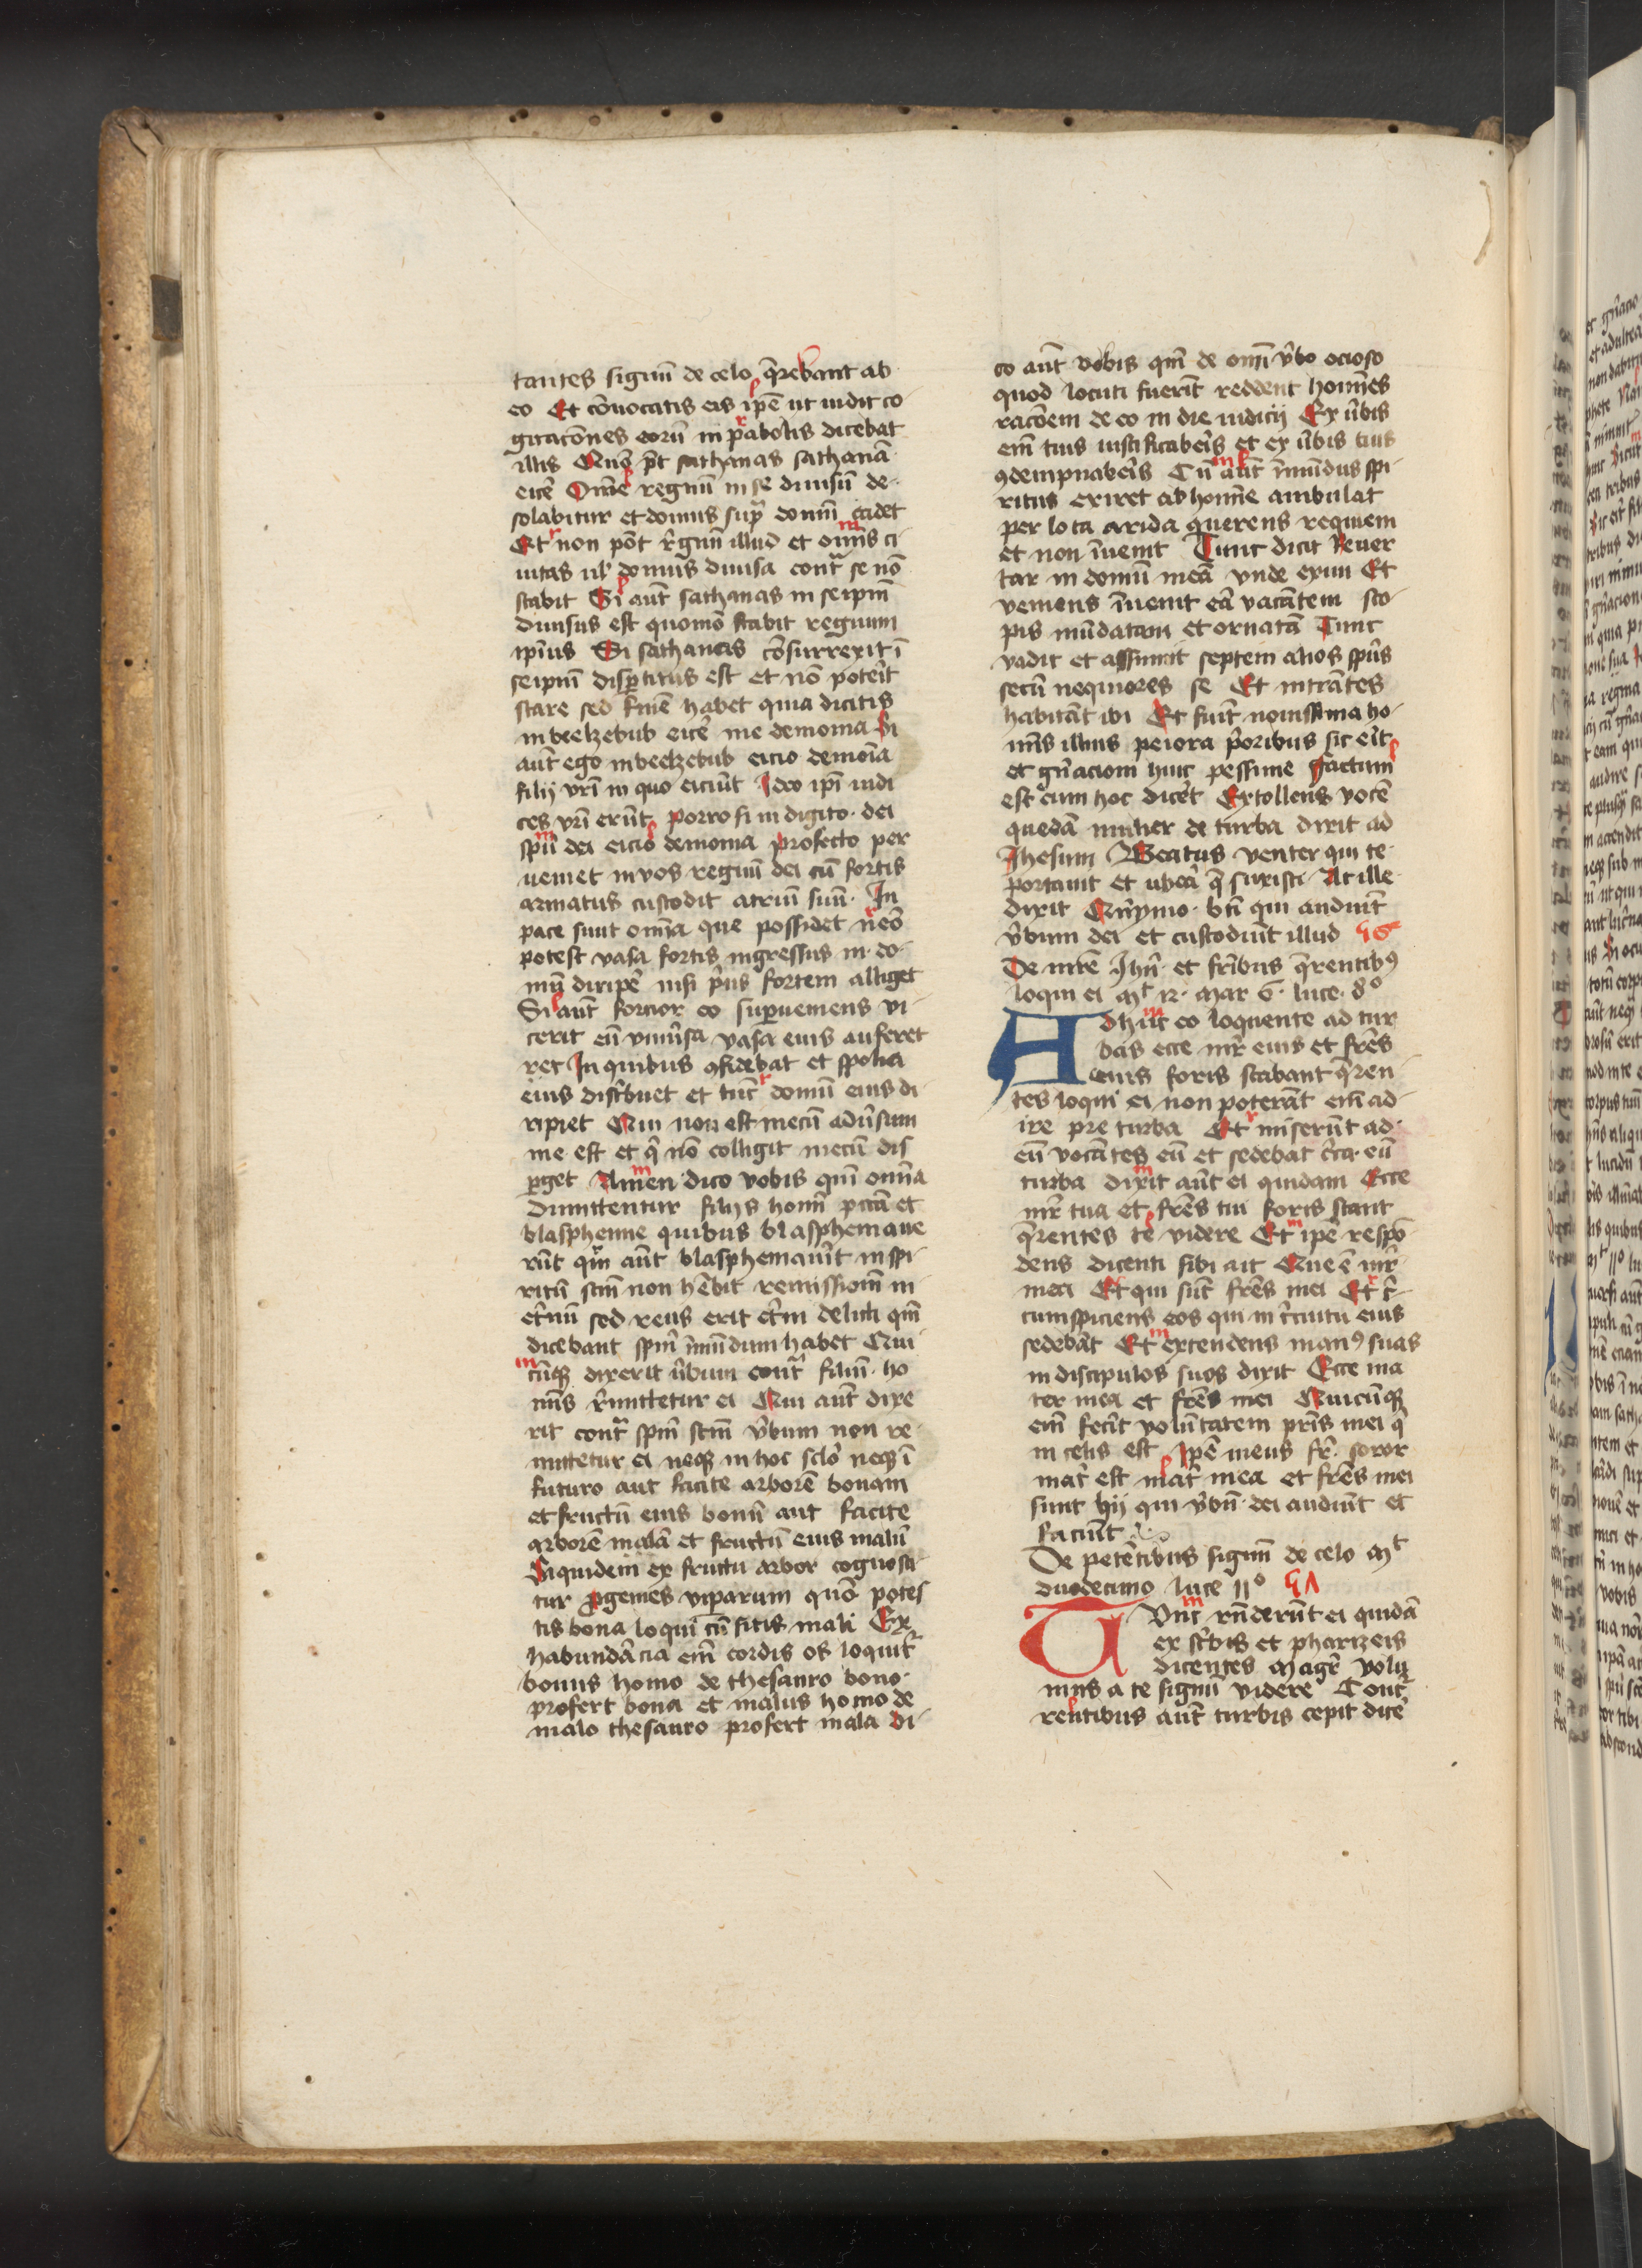 tantes signũ de celo q̃rebant ab
eo Et cõuocatis eis ip̃e ut uidit co-
gitacõnes eorũ in ꝑabolis dicebat
illis Quõ p̃t sathanas sathanã
eicẽ Om̃e regnũ in se diuisũ de-
solabitur et domus sup̃ domũ cadet
Et non põt r̃gnũ illud et oĩns ci
uitas ul̃ domus diuisa cont̃ se nõ
stabit Si aũt sathanas in seip̃m
diuisus est quomõ stabit regnum
ip̃ius Si sathanas cõsurrexit ĩ
seip̃m disꝑtitus est et nõ poteĩt
stare sed finẽ habet quia dicitis
in beelzebub eicẽ me demonia Si
aũt ego in beelzebub eicio demoĩa
filij vr̃i in quo eiciũt Ideo ip̃i iudi
ces vr̃i erũt porro si in digito dei
sp̃u dei eicio demonia profecto per
ueniet in vos regnũ dei cũ fortis
armatus custodit atriũ suũ In
pace sunt om̃ia que possidet nẽo
potest vasa fortis ingressus in do-
mũ diripẽ nisi p̃us fortem alliget
Si aũt forcior eo suꝑueniens vi-
cerit eũ vniũsa vasa eius auferet
ret In quibus ꝯfidebat et spolia
eius disťbuet et tũc domũ eius di-
ripiet Qui non est mecũ adũsum
me est et q̃ nõ colligit mecũ dis
ꝑget Amen dico vobis qm̃ om̃ia
dimittentur filijs homĩ pctã et
blasphemie quibus blasphemaue
rũt qm̃ aũt blasphemauĩt in spi-
ritũ sc̃m non hẽbit remissionẽ in
et̃nũ sed reus erit et̃ni delicti qm̃
dicebant sp̃m ĩmũdum habet Qui
cũqꝫ dixerit ũbum cont̃ filiũ ho
mĩs r̃mittetur ei Qui aũt dixe
rit cont̃ sp̃m sc̃m ṽbum non re-
mittetur ei neqꝫ in hoc sclõ neqꝫ ĩ
futuro aut facite arborẽ bonam
et fructũ eius bonũ aut facite
arborẽ malã et fructũ eius malũ
Siquidem ex fructu arbor cognosci-
tur progenies viperarum quõ potes
tis bona loqui cũ sitis mali Ex
habundãcia em̃ cordis os loquit̃
bonus homo de thesauro bono
profert bona et malus homo de
malo thesauro profert mala Di-
co aũt vobis qm̃ de om̃i ṽbo ocioso
quod locuti fuerĩt reddent homĩes
racõem de eo in die iudicij Ex ũbis
em̃ tuis iustificabeĩs et ex ũbis tuis
ꝯdempnabeĩs Cũ aũt ĩmũdus spi-
ritus exiret ab homĩe ambulat
per loca arida querens requiem
et non ĩuenit Tunc dicit Reuer
tar in domũ meã vnde exiui Et
veniens ĩuenit eã vacãtem sco-
pis mũdatam et ornatã Tunc
vadit et assumit septem alios sp̃us
secũ nequiores se Et intrãtes
habitãt ibi Et fiũt nouissima ho-
mĩs illius peiora p̃oribus sic eĩt
et gñaciõni huic pessime Factum
est cum hoc dicẽt Extollens vocẽ
quedã mulier de turba dixit ad
Ihesum Beatus venter qui te
portauit et ubeã q̃ suxisti At ille
dixit Qñymo bt̃i qui audiũt
ṽbum dei et custodiũt illud
De mr̃e Ihũ et fr̃ibus q̃rentibꝰ
loqui ei Mt 12 Mar 6 luce 8o
Adhuc eo loquente ad tur
bas ecce mr̃ eius et fr̃es
eius foris stabant q̃ren-
tes loqui ei non poterãt em̃ ad-
ire pre turba Et miserũt ad
eũ vocãtes eũ et sedebat cĩca eũ
turba dixit aũt ei quidam Ecce
mr̃ tua et fr̃es tui foris stant
q̃rentes te videre Et ip̃e respõ-
dens dicenti sibi ait Que ẽ mr̃
mea Et qui sũt fr̃es mei Et cĩ-
cumspiciens eos qui in cĩcuitu eius
sedebãt Et extendens manꝰ suas
in discipulos suos dixit Ecce ma
ter mea et fr̃es mei Quicũqꝫ
em̃ fecĩt volũtatem pr̃is mei q̃
in celis est Ip̃e meus fr̃ soror
mat̃ est mat̃ mea et fr̃es mei
sunt hij qui ṽbũ dei audiũt et
faciũt
De petẽtibus signũ de celo Mt
duodecimo luce 11o
Tũnc rñderũt ei quidã
ex scĩbis et pharizeis
dicentes Magr̃ volu
mus a te signũ videre Concr̃
rentibus aũt turbis cepit dicẽ